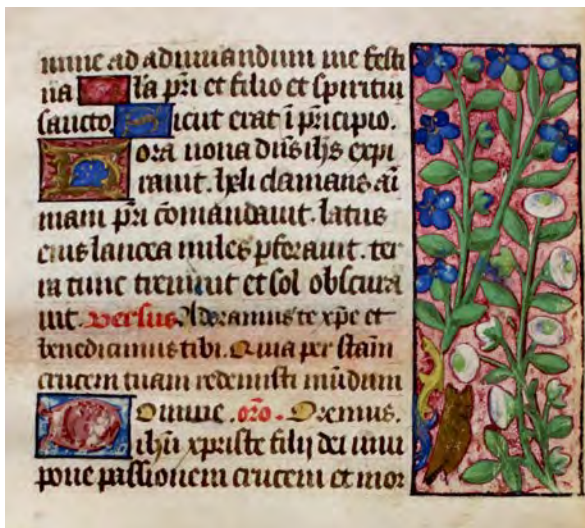 mine ad adiuuandum me festi
na Gla pri et filio et spiritui
sancto. Sicut erat i principio.
Hora nona dns ihs expi
rauit. heli clamans ai
mam pri comandauit. latus
eius lancea miles pforauit. ter
ra tunc tremuit et sol obscura
uit. Versus. Adoramus te xpe et
benedicimus tibi. Quia per stam
crucem tuam redemisti mundum
Domine. oro. Oremus.
ihu xpriste filij dei uiui
pone passionem crucem et mor